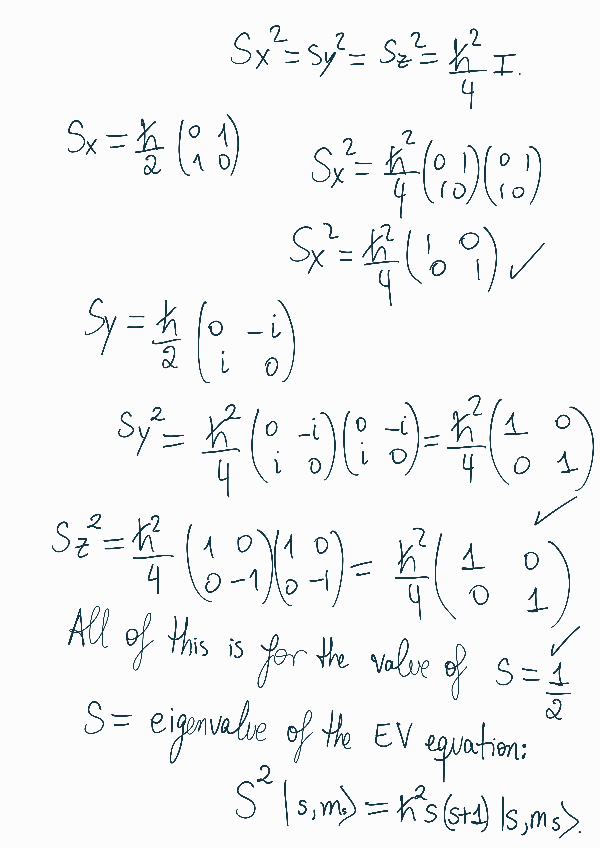 Sx² = Sy² = Sz² = ℏ²/4 I.
Sx = ℏ/2 (0 1; 1 0)
Sx² = ℏ²/4 (0 1; 1 0)(0 1; 1 0)
Sx² = ℏ²/4 (1 0; 0 1) ✓
Sy = ℏ/2 (0 -i; i 0)
Sy² = ℏ²/4 (0 -i; i 0)(0 -i; i 0) = ℏ²/4 (1 0; 0 1) ✓
Sz² = ℏ²/4 (1 0; 0 -1)(1 0; 0 -1) = ℏ²/4 (1 0; 0 1) ✓
All of this is for the value of S = 1/2
S = eigenvalue of the EV equation:
S² |s,ms⟩ = ℏ² s(s+1) |s,ms⟩.